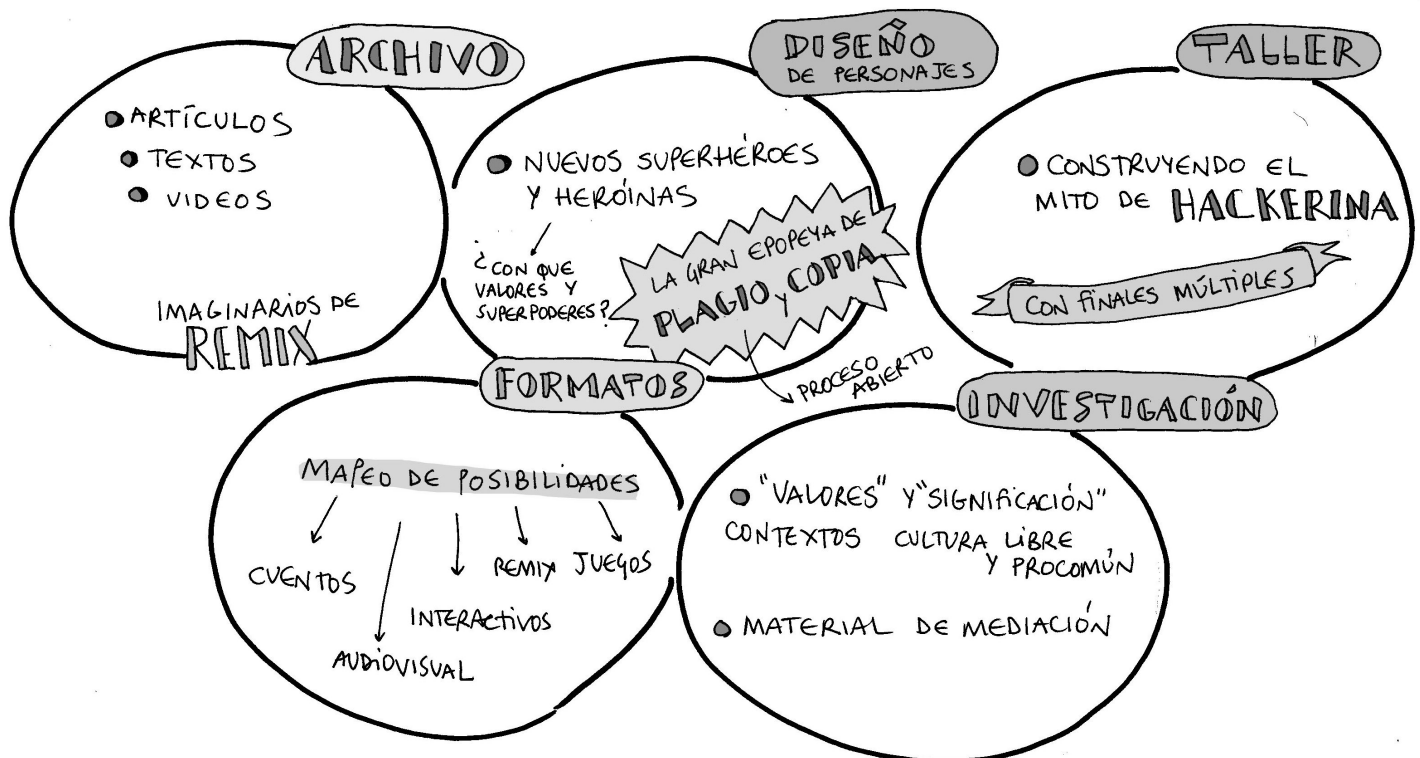 ARCHIVO
ARTÍCULOS
TEXTOS
VIDEOS
IMAGINARIOS DE
REMIX
DISEÑO
DE PERSONAJES
NUEVOS SUPERHÉROES
Y HERÓINAS
¿CON QUE
VALORES Y
SUPERPODERES?
LA GRAN EPOPEYA DE
PLAGIO Y COPIA
PROCESO
ABIERTO
TALLER
CONSTRUYENDO EL
MITO DE HACKERINA
CON FINALES MÚLTIPLES
FORMATOS
MAPEO DE POSIBILIDADES
CUENTOS
AUDIOVISUAL
INTERACTIVOS
REMIX
JUEGOS
INVESTIGACIÓN
"VALORES" Y "SIGNIFICACIÓN"
CONTEXTOS CULTURA LIBRE
Y PROCOMÚN
MATERIAL DE MEDIACIÓN